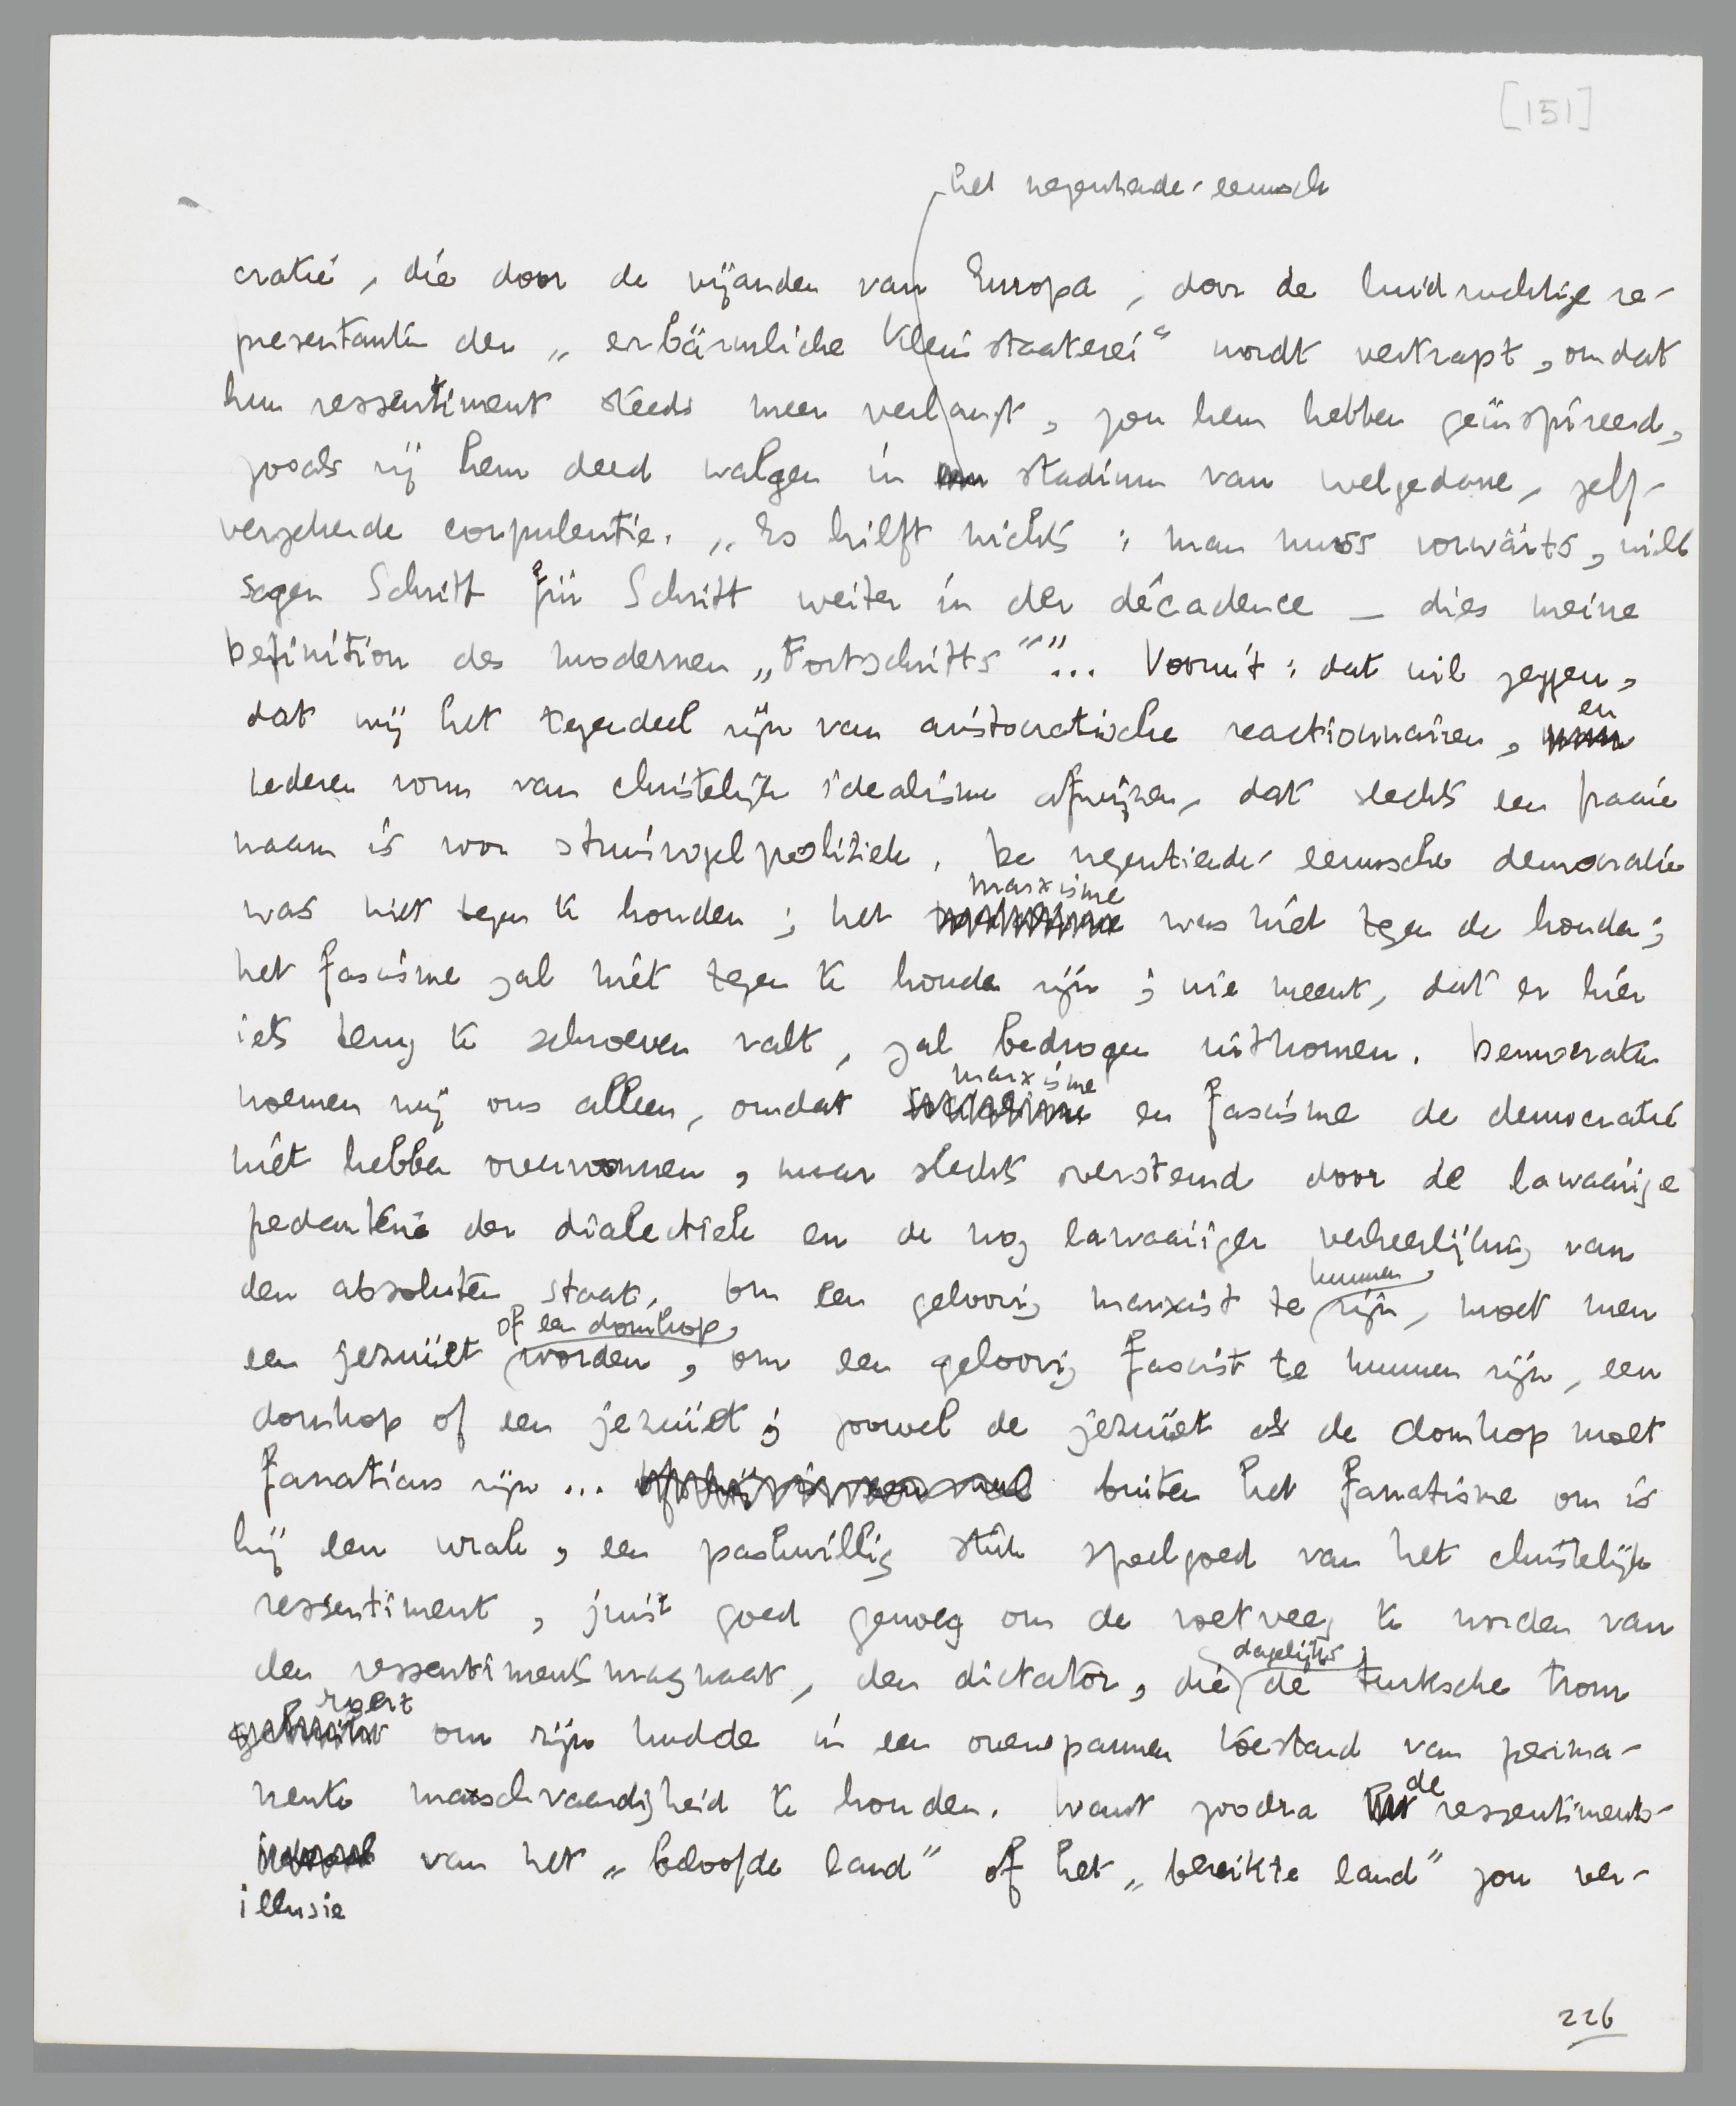 [151]
het negentiende-eeuwsch
cratie, die door de vijanden van Europa, door de luidruchtige re-
presentanten der „erbärmliche Kleinstaaterei“ wordt vertrapt, omdat
hun ressentiment steeds meer verlangt, zou hem hebben geïnspireerd,
zooals zij hem deed walgen in stadium van welgedane, zelf-
verzekerde corpulentie. „Es hilft nichts: man muss vorwärts, will
sagen Schritt für Schritt weiter in der décadence — dies meine
Definition des modernen „Fortschritts“”... Vooruit: dat wil zeggen,
dat wij het tegendeel zijn van aristocratische reactionnairen, en
iederen vorm van christelijk idealisme afwijzen, dat slechts een fraaie
naam is voor struisvogelpolitiek. De negentiende-eeuwsche democratie
was niet tegen te houden; het marxisme was niet tegen de houden;
het fascisme zal niet tegen te houden zijn; wie meent, dat er hier
iets terug te schroeven valt, zal bedrogen uitkomen. Democraten
noemen wij ons alleen, omdat marxisme en fascisme de democratie
niet hebben overwonnen, maar slechts overstemd door de lawaaiige
pedanterie der dialectiek en de nog lawaaiiger verheerlijking van
den absoluten staat. Om een geloovig marxist te kunnen zijn, moet men
een jezuïet of een domkop worden, om een geloovig fascist te kunnen zijn, een
domkop of een jezuïet; zoowel de jezuïet als de domkop moet
fanaticus zijn... buiten het fanatisme om is
hij een wrak, een paskwillig stuk speelgoed van het christelijk
ressentiment, juist goed genoeg om de voetveeg te worden van
den ressentimentsmagnaat, den dictator, die dagelijks de turksche trom
roert om zijn kudde in een overspannen toestand van perma-
nente marschvaardigheid te houden. Want zoodra de ressentiments-
illusie van het „beloofde land” of het „bereikte land” zou ver-
226